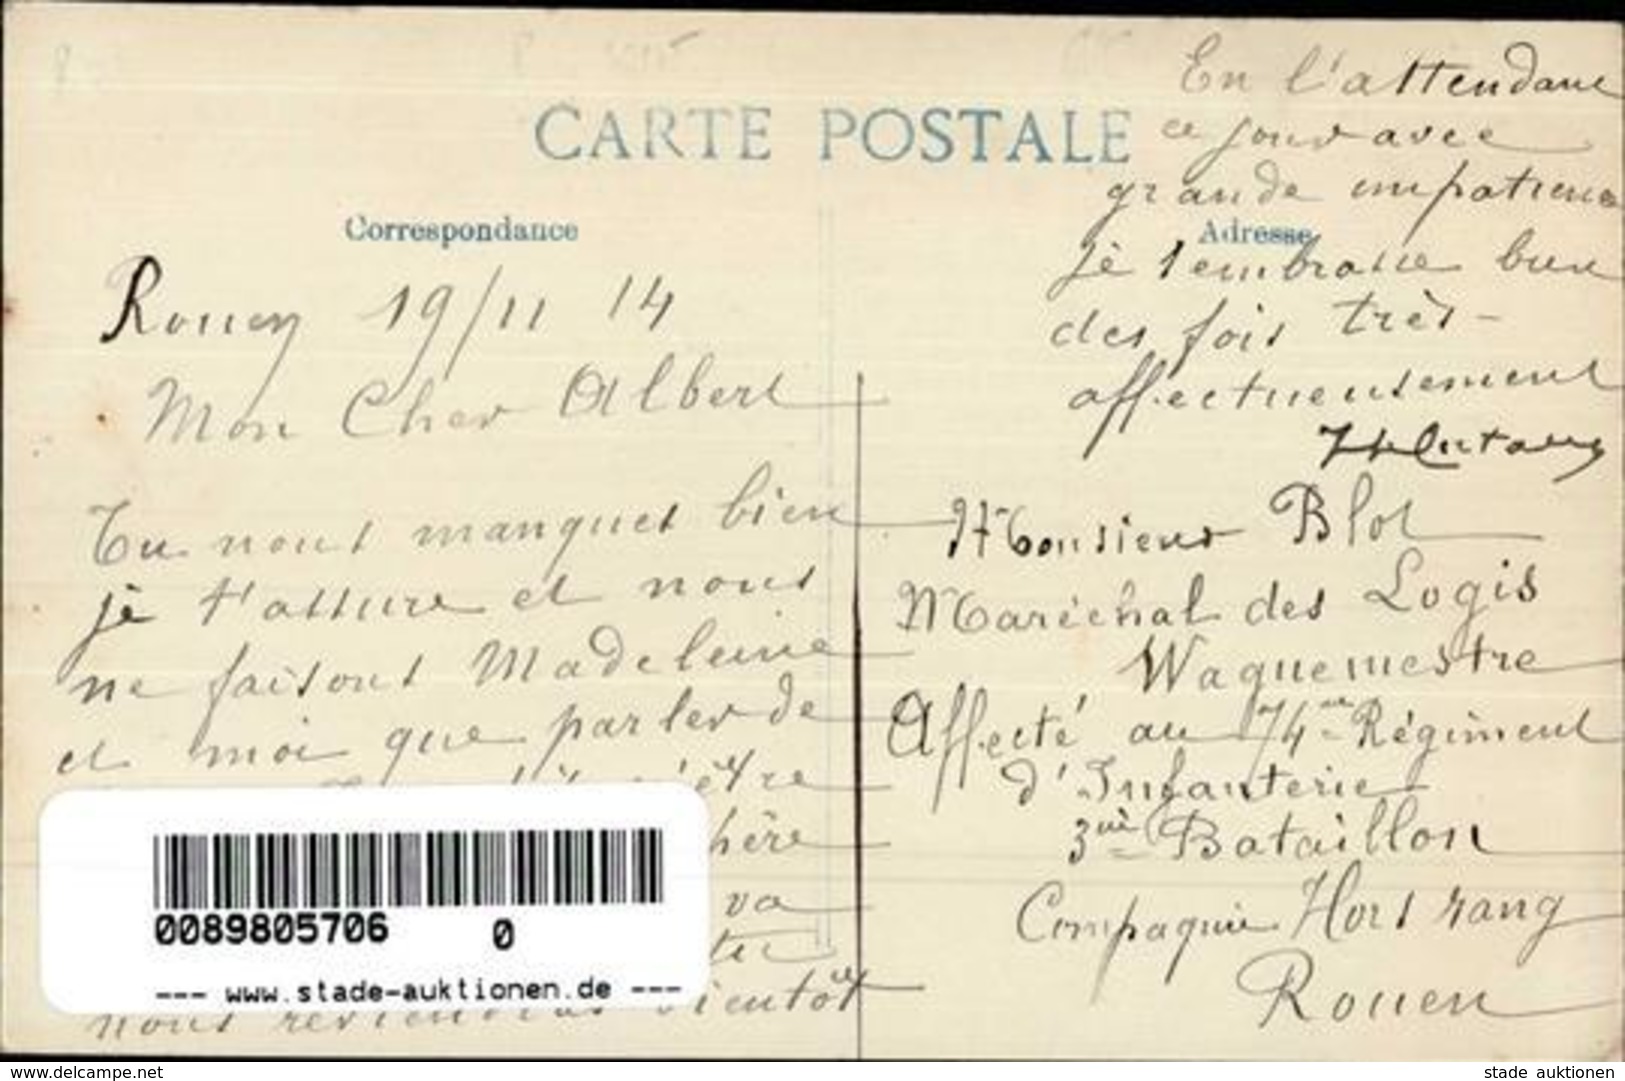 CARTE POSTALE
Correspondance
Rouen 19/11 14
Mon Cher Albert
Tu nous manques bien
je t'assure et nous
ne faisons Madeleine
et moi que parler de
être
va
nous reviendras bientôt
En l'attendant
ce jour avec
grande impatience
Adresse
je t'embrasse bien
des fois très
affectueusement
Monsieur Blot
Maréchal des Logis
Waguemestre
Affecté au 74me Régiment
d'Infanterie
3me Bataillon
Compagnie Hors rang
Rouen
0089805706 0
--- www.stade-auktionen.de ---
www.delcampe.net
stade auktionen